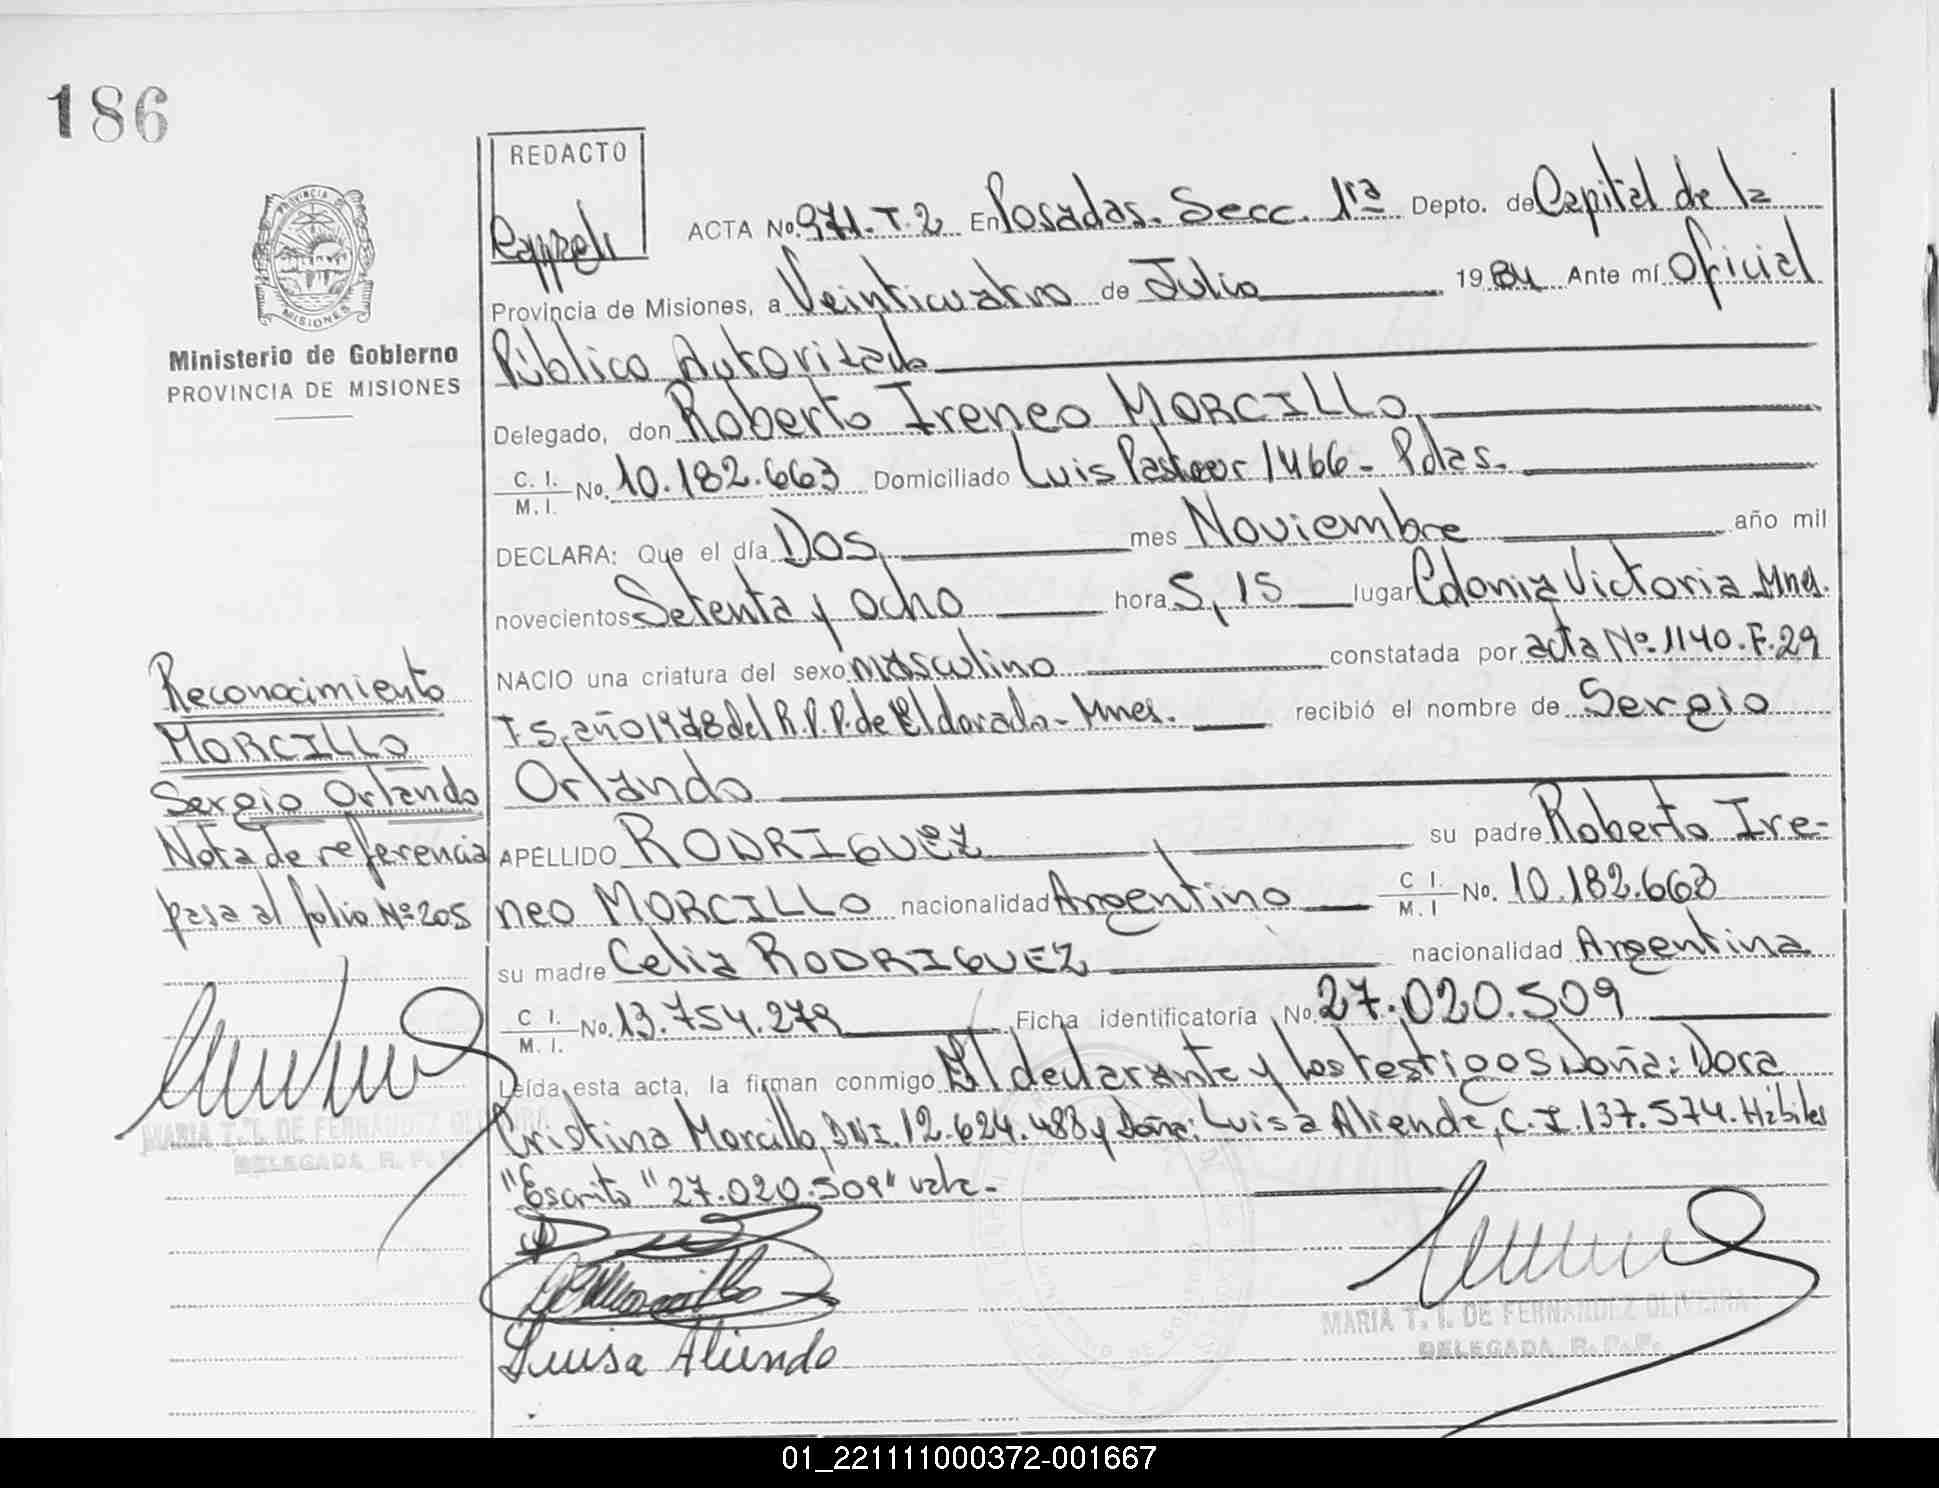 186
REDACTO
PROVINCIA DE
MISIONES
Ministerio de Gobierno
PROVINCIA DE MISIONES
ACTA No. 971. T. 2 En Posadas. Secc. 1ra Depto. de Capital de la
Provincia de Misiones, a Veinticuatro de Julio 1984 Ante mí Oficial
Público Autorizado
Delegado, don Roberto Ireneo MORCILLO
C. I. / M. I. No. 10.182.663 Domiciliado Luis Pasteur 1466 - Pdas.
DECLARA: Que el día Dos mes Noviembre año mil
novecientos Setenta y ocho hora 5,15 lugar Colonia Victoria Mnes.
NACIO una criatura del sexo masculino constatada por acta No. 1140. F. 29
T 5, año 1978 del R. P. P. de Eldorado - Mnes. recibió el nombre de Sergio
Orlando
APELLIDO RODRIGUEZ su padre Roberto Ire-
neo MORCILLO nacionalidad Argentino C I. / M. I No. 10.182.663
su madre Celia RODRIGUEZ nacionalidad Argentina
C I. / M. I. No. 13.754.279 Ficha identificatoria No. 27.020.509
Leída esta acta, la firman conmigo El declarante y los testigos Doña: Dora
Cristina Morcillo, DNI. 12.624.488 y Doña: Luisa Aliende, C. I. 137.574. Hábiles
"Escrito "27.020.509" vale.-
Luisa Aliendo
MARIA T. I. DE FERNANDEZ OLIVEIRA
DELEGADA R. P. P.
Reconocimiento
MORCILLO
Sergio Orlando
Nota de referencia
pasa al folio No. 205
MARIA T. I. DE FERNANDEZ OLIVEIRA
DELEGADA R. P. P.
01_221111000372-001667